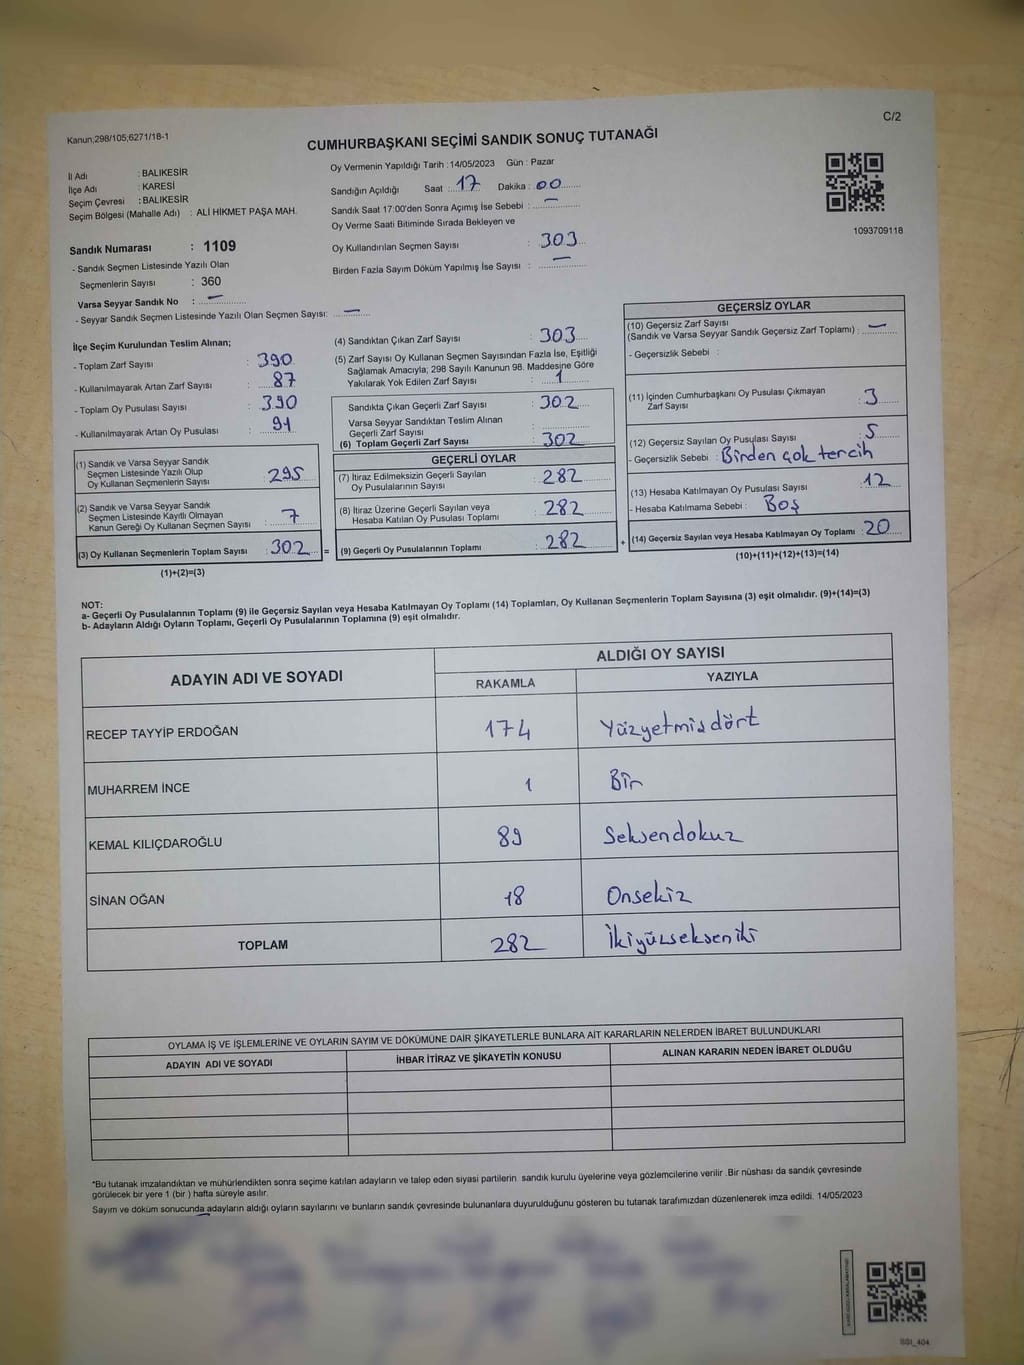 Kanun;298/105;6271/18-1
C/2
CUMHURBAŞKANI SEÇİMİ SANDIK SONUÇ TUTANAĞI
İl Adı : BALIKESİR
İlçe Adı : KARESİ
Seçim Çevresi : BALIKESİR
Seçim Bölgesi (Mahalle Adı) : ALİ HİKMET PAŞA MAH.
Sandık Numarası : 1109
- Sandık Seçmen Listesinde Yazılı Olan
Seçmenlerin Sayısı : 360
Varsa Seyyar Sandık No : —
- Seyyar Sandık Seçmen Listesinde Yazılı Olan Seçmen Sayısı: —
Oy Vermenin Yapıldığı Tarih : 14/05/2023 Gün : Pazar
Sandığın Açıldığı Saat : 17 Dakika : 00
Sandık Saat 17:00'den Sonra Açımış İse Sebebi : —
Oy Verme Saati Bitiminde Sırada Bekleyen ve
Oy Kullandırılan Seçmen Sayısı : 303
Birden Fazla Sayım Döküm Yapılmış İse Sayısı : —
1093709118
İlçe Seçim Kurulundan Teslim Alınan;
- Toplam Zarf Sayısı : 390
- Kullanılmayarak Artan Zarf Sayısı : 87
- Toplam Oy Pusulası Sayısı : 390
- Kullanılmayarak Artan Oy Pusulası : 91
(1) Sandık ve Varsa Seyyar Sandık
Seçmen Listesinde Yazılı Olup
Oy Kullanan Seçmenlerin Sayısı : 295
(2) Sandık ve Varsa Seyyar Sandık
Seçmen Listesinde Kayıtlı Olmayan
Kanun Gereği Oy Kullanan Seçmen Sayısı : 7
(3) Oy Kullanan Seçmenlerin Toplam Sayısı : 302 =
(1)+(2)=(3)
(4) Sandıktan Çıkan Zarf Sayısı : 303
(5) Zarf Sayısı Oy Kullanan Seçmen Sayısından Fazla İse, Eşitliği
Sağlamak Amacıyla; 298 Sayılı Kanunun 98. Maddesine Göre
Yakılarak Yok Edilen Zarf Sayısı : 1
Sandıkta Çıkan Geçerli Zarf Sayısı : 302
Varsa Seyyar Sandıktan Teslim Alınan
Geçerli Zarf Sayısı :
(6) Toplam Geçerli Zarf Sayısı : 302
GEÇERLİ OYLAR
(7) İtiraz Edilmeksizin Geçerli Sayılan
Oy Pusulalarının Sayısı : 282
(8) İtiraz Üzerine Geçerli Sayılan veya
Hesaba Katılan Oy Pusulası Toplamı : 282
(9) Geçerli Oy Pusulalarının Toplamı : 282 +
GEÇERSİZ OYLAR
(10) Geçersiz Zarf Sayısı
(Sandık ve Varsa Seyyar Sandık Geçersiz Zarf Toplamı) : —
- Geçersizlik Sebebi :
(11) İçinden Cumhurbaşkanı Oy Pusulası Çıkmayan
Zarf Sayısı : 3
(12) Geçersiz Sayılan Oy Pusulası Sayısı : 5
- Geçersizlik Sebebi : Birden çok tercih
(13) Hesaba Katılmayan Oy Pusulası Sayısı : 12
- Hesaba Katılmama Sebebi : Boş
(14) Geçersiz Sayılan veya Hesaba Katılmayan Oy Toplamı : 20
(10)+(11)+(12)+(13)=(14)
NOT:
a- Geçerli Oy Pusulalarının Toplamı (9) ile Geçersiz Sayılan veya Hesaba Katılmayan Oy Toplamı (14) Toplamları, Oy Kullanan Seçmenlerin Toplam Sayısına (3) eşit olmalıdır. (9)+(14)=(3)
b- Adayların Aldığı Oyların Toplamı, Geçerli Oy Pusulalarının Toplamına (9) eşit olmalıdır.
ADAYIN ADI VE SOYADI
ALDIĞI OY SAYISI
RAKAMLA YAZIYLA
RECEP TAYYİP ERDOĞAN 174 Yüzyetmişdört
MUHARREM İNCE 1 Bir
KEMAL KILIÇDAROĞLU 89 Seksendokuz
SİNAN OĞAN 18 Onsekiz
TOPLAM 282 İkiyüzsekseniki
OYLAMA İŞ VE İŞLEMLERİNE VE OYLARIN SAYIM VE DÖKÜMÜNE DAİR ŞİKAYETLERLE BUNLARA AİT KARARLARIN NELERDEN İBARET BULUNDUKLARI
ADAYIN ADI VE SOYADI İHBAR İTİRAZ VE ŞİKAYETİN KONUSU ALINAN KARARIN NEDEN İBARET OLDUĞU
*Bu tutanak imzalandıktan ve mühürlendikten sonra seçime katılan adayların ve talep eden siyasi partilerin sandık kurulu üyelerine veya gözlemcilerine verilir .Bir nüshası da sandık çevresinde
görülecek bir yere 1 (bir ) hafta süreyle asılır.
Sayım ve döküm sonucunda adayların aldığı oyların sayılarını ve bunların sandık çevresinde bulunanlara duyurulduğunu gösteren bu tutanak tarafımızdan düzenlenerek imza edildi. 14/05/2023